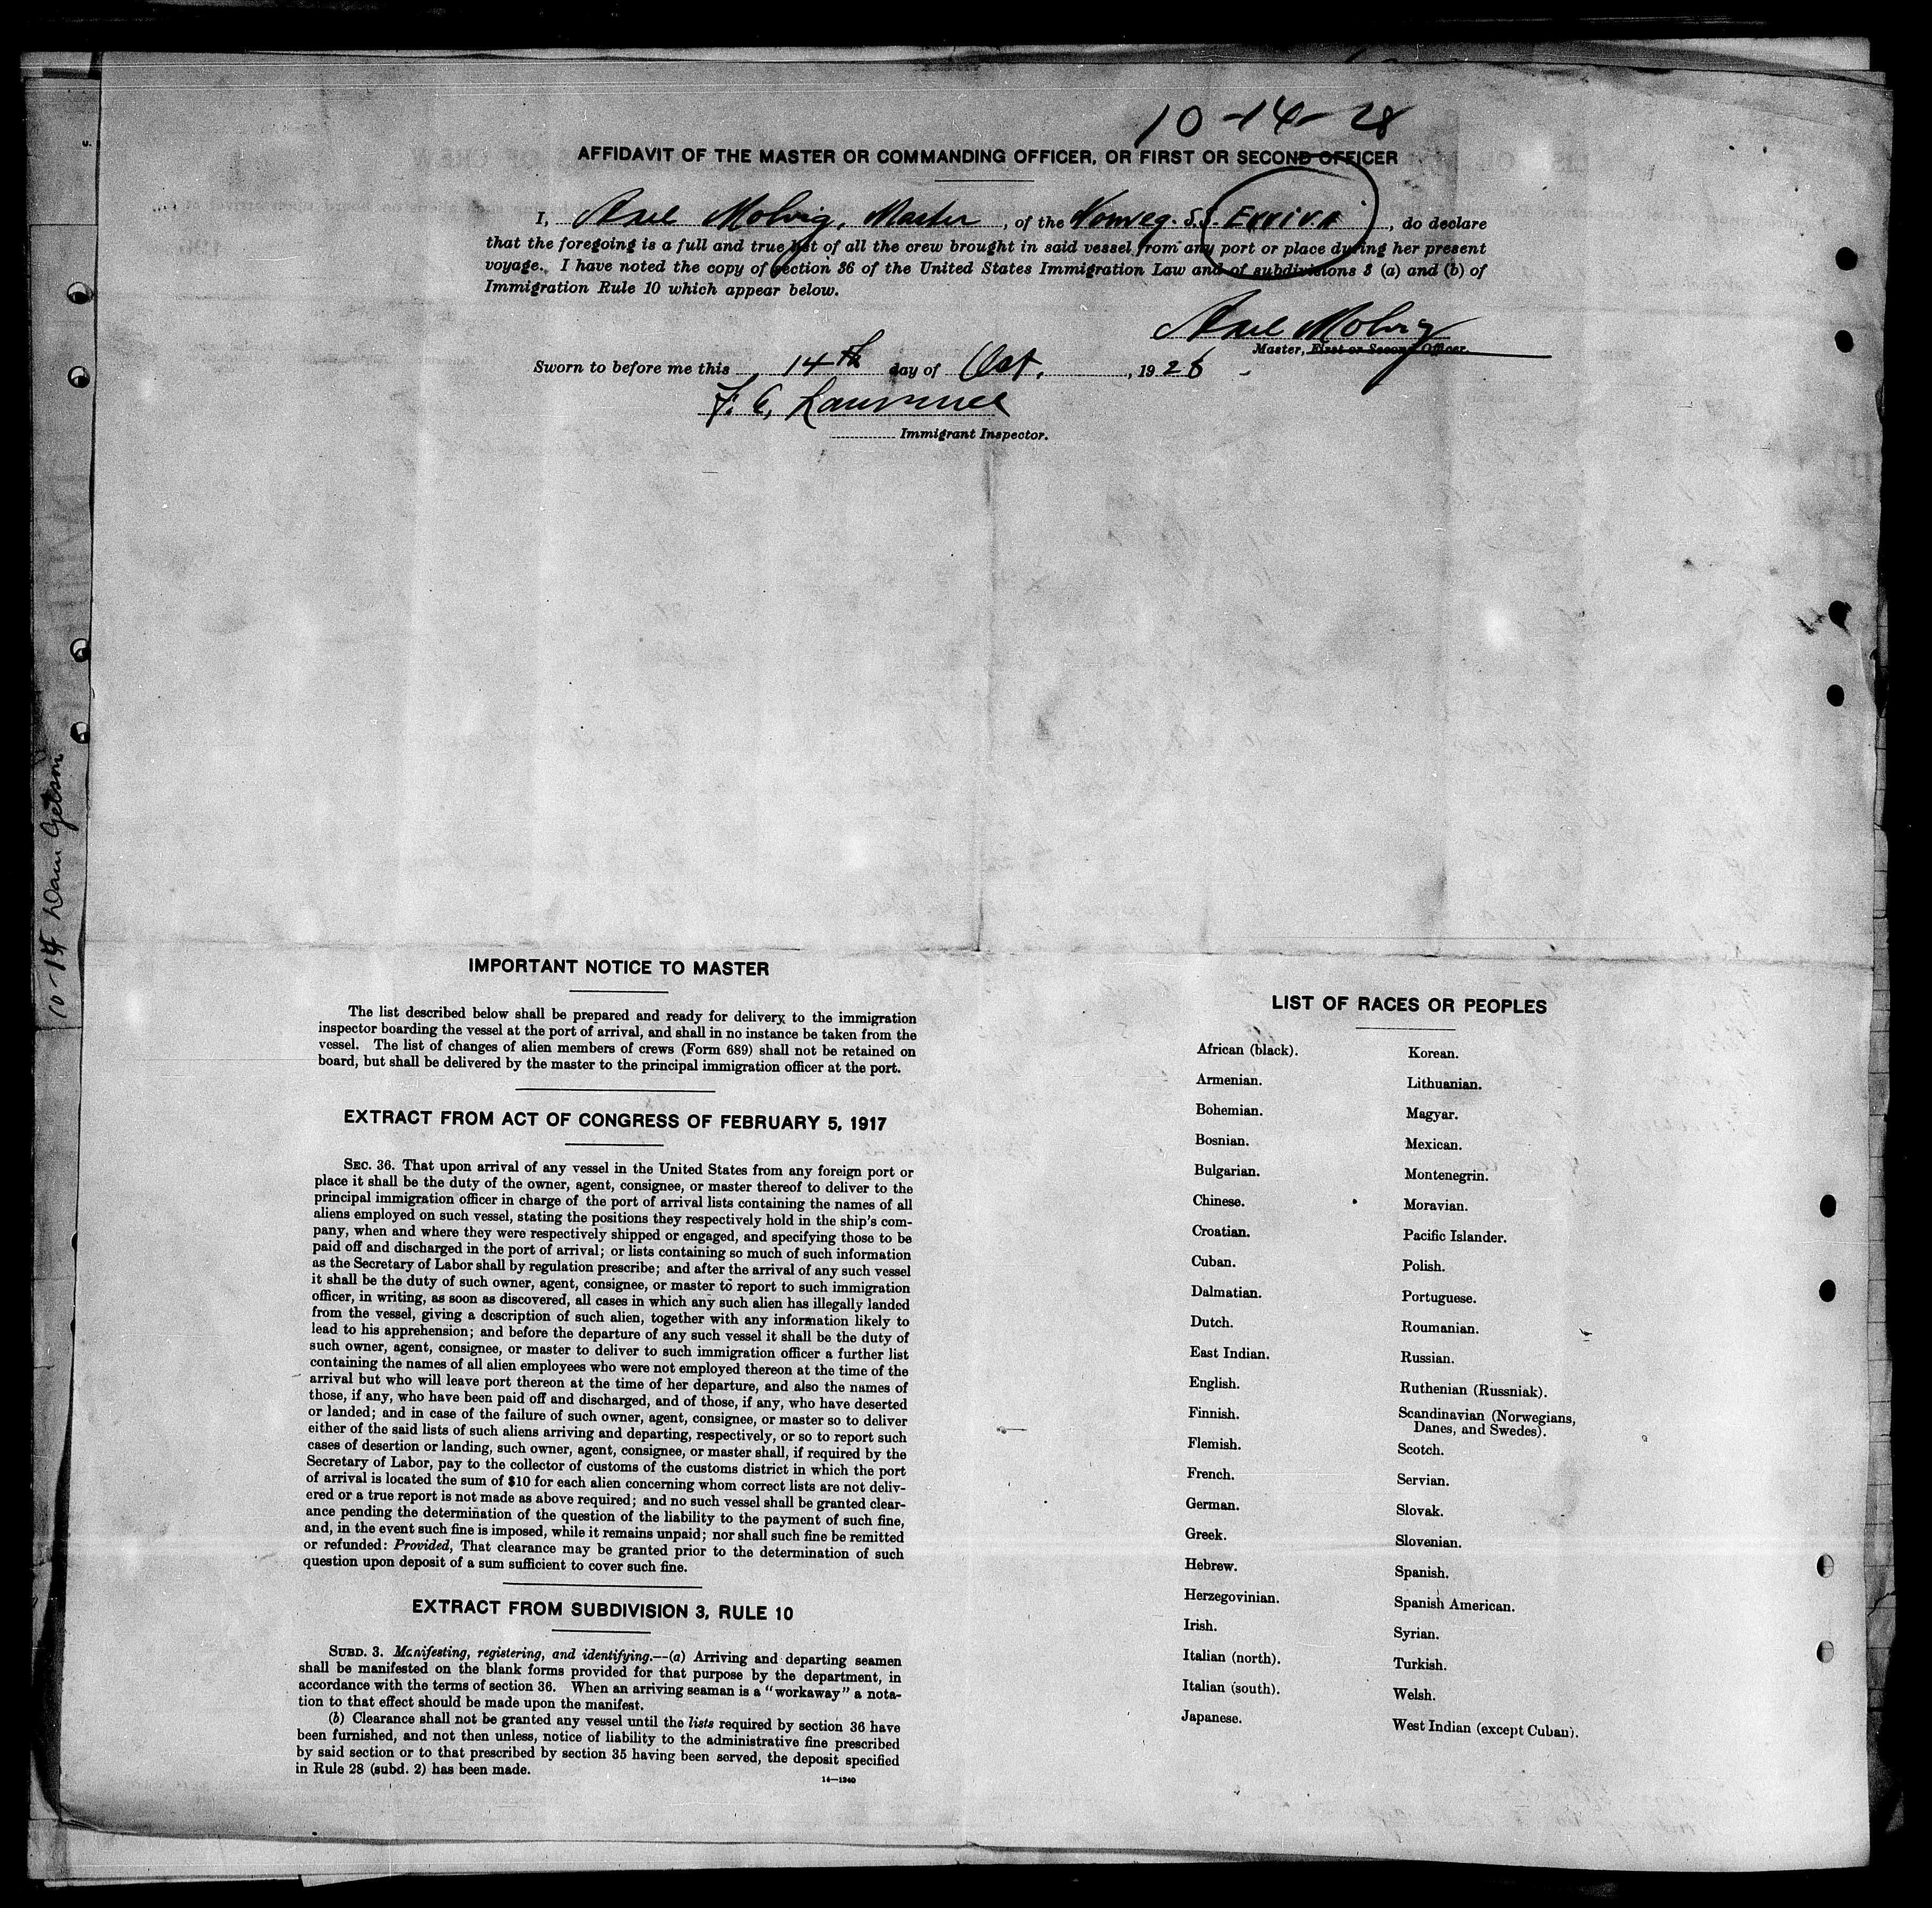 10-14-28
AFFIDAVIT OF THE MASTER OR COMMANDING OFFICER, OR FIRST OR SECOND OFFICER
I, Axel Molvig, Master, of the Norweg. S.S. Erviva, do declare
that the foregoing is a full and true list of all the crew brought in said vessel from any port or place during her present
voyage. I have noted the copy of section 36 of the United States Immigration Law and of subdivisions 3 (a) and (b) of
Immigration Rule 10 which appear below.
Axel Molvig
Master, First or Second Officer.
Sworn to before me this 14th day of Oct., 1928
F. C. Lawrence
Immigrant Inspector.
10-14
IMPORTANT NOTICE TO MASTER
The list described below shall be prepared and ready for delivery to the immigration
inspector boarding the vessel at the port of arrival, and shall in no instance be taken from the
vessel. The list of changes of alien members of crews (Form 689) shall not be retained on
board, but shall be delivered by the master to the principal immigration officer at the port.
EXTRACT FROM ACT OF CONGRESS OF FEBRUARY 5, 1917
SEC. 36. That upon arrival of any vessel in the United States from any foreign port or
place it shall be the duty of the owner, agent, consignee, or master thereof to deliver to the
principal immigration officer in charge of the port of arrival lists containing the names of all
aliens employed on such vessel, stating the positions they respectively hold in the ship's com-
pany, when and where they were respectively shipped or engaged, and specifying those to be
paid off and discharged in the port of arrival; or lists containing so much of such information
as the Secretary of Labor shall by regulation prescribe; and after the arrival of any such vessel
it shall be the duty of such owner, agent, consignee, or master to report to such immigration
officer, in writing, as soon as discovered, all cases in which any such alien has illegally landed
from the vessel, giving a description of such alien, together with any information likely to
lead to his apprehension; and before the departure of any such vessel it shall be the duty of
such owner, agent, consignee, or master to deliver to such immigration officer a further list
containing the names of all alien employees who were not employed thereon at the time of the
arrival but who will leave port thereon at the time of her departure, and also the names of
those, if any, who have been paid off and discharged, and of those, if any, who have deserted
or landed; and in case of the failure of such owner, agent, consignee, or master so to deliver
either of the said lists of such aliens arriving and departing, respectively, or so to report such
cases of desertion or landing, such owner, agent, consignee, or master shall, if required by the
Secretary of Labor, pay to the collector of customs of the customs district in which the port
of arrival is located the sum of $10 for each alien concerning whom correct lists are not deliv-
ered or a true report is not made as above required; and no such vessel shall be granted clear-
ance pending the determination of the question of the liability to the payment of such fine,
and, in the event such fine is imposed, while it remains unpaid; nor shall such fine be remitted
or refunded: Provided, That clearance may be granted prior to the determination of such
question upon deposit of a sum sufficient to cover such fine.
EXTRACT FROM SUBDIVISION 3, RULE 10
SUBD. 3. Manifesting, registering, and identifying.—(a) Arriving and departing seamen
shall be manifested on the blank forms provided for that purpose by the department, in
accordance with the terms of section 36. When an arriving seaman is a "workaway" a nota-
tion to that effect should be made upon the manifest.
(b) Clearance shall not be granted any vessel until the lists required by section 36 have
been furnished, and not then unless, notice of liability to the administrative fine prescribed
by said section or to that prescribed by section 35 having been served, the deposit specified
in Rule 28 (subd. 2) has been made.
14—1240
LIST OF RACES OR PEOPLES
African (black).
Armenian.
Bohemian.
Bosnian.
Bulgarian.
Chinese.
Croatian.
Cuban.
Dalmatian.
Dutch.
East Indian.
English.
Finnish.
Flemish.
French.
German.
Greek.
Hebrew.
Herzegovinian.
Irish.
Italian (north).
Italian (south).
Japanese.
Korean.
Lithuanian.
Magyar.
Mexican.
Montenegrin.
Moravian.
Pacific Islander.
Polish.
Portuguese.
Roumanian.
Russian.
Ruthenian (Russniak).
Scandinavian (Norwegians,
Danes, and Swedes).
Scotch.
Servian.
Slovak.
Slovenian.
Spanish.
Spanish American.
Syrian.
Turkish.
Welsh.
West Indian (except Cuban).